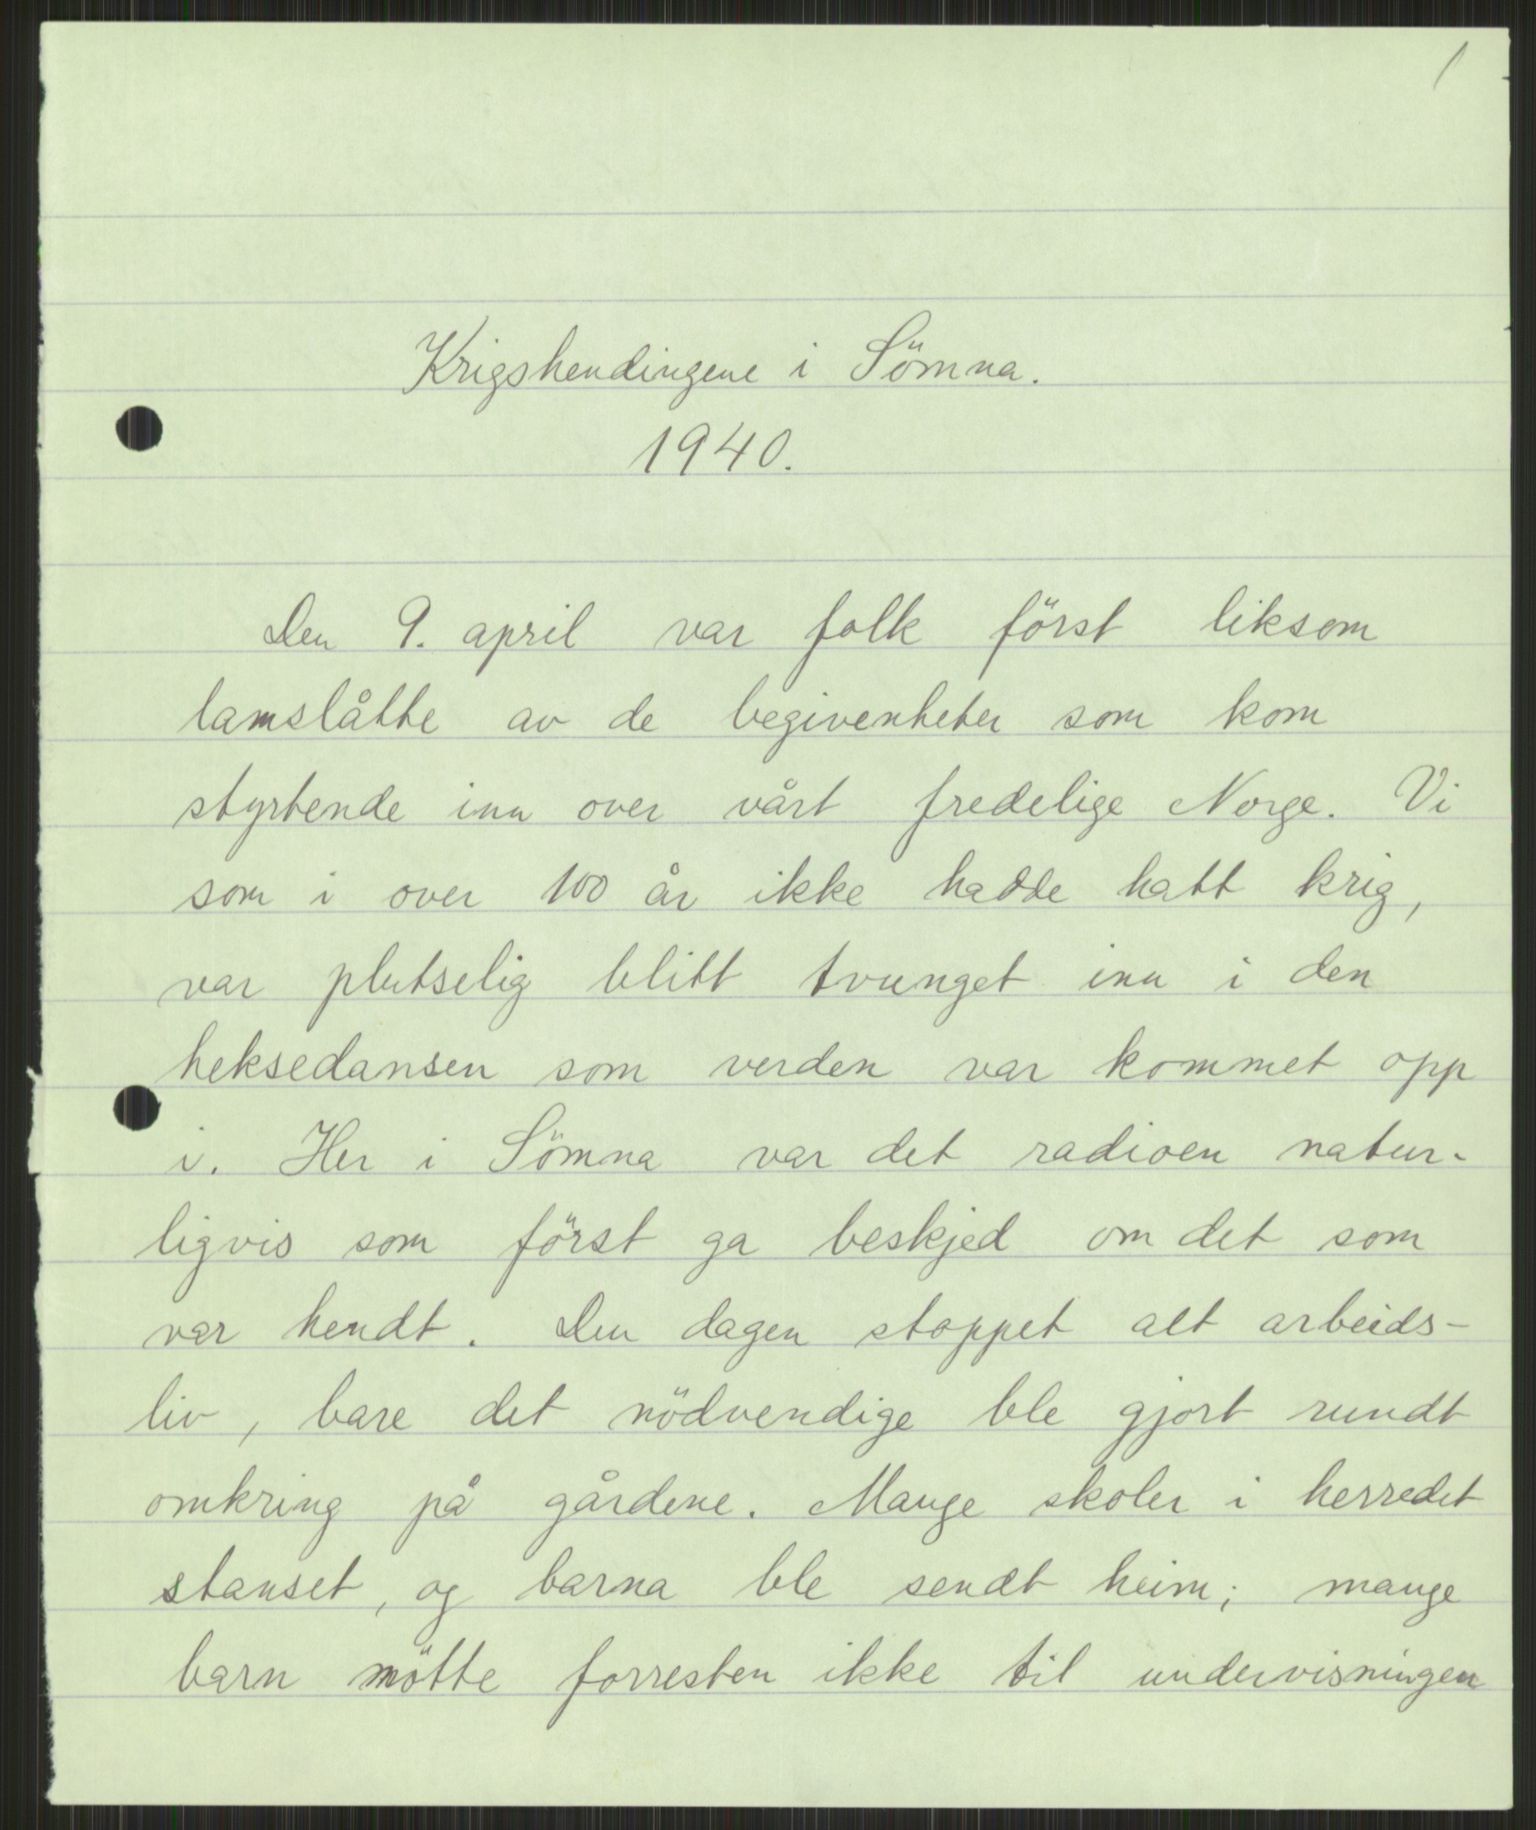 1
Krigshendingene i Sömna.
1940.
Den 9. april var folk först liksom
lamslåtte av de begivenheter som kom
styrtende inn over vårt fredelige Norge. Vi
som i over 100 år ikke hadde hatt krig,
var plutselig blitt tvunget inn i den
heksedansen som verden var kommet opp
i. Her i Sömna var det radioen natur-
ligvis som först ga beskjed om det som
var hendt. Den dagen stoppet alt arbeids-
liv, bare det nödvendige ble gjort rundt
omkring på gårdene. Mange skoler i herredet
stanset, og barna ble sendt heim; mange
barn mötte forresten ikke til undervisningen